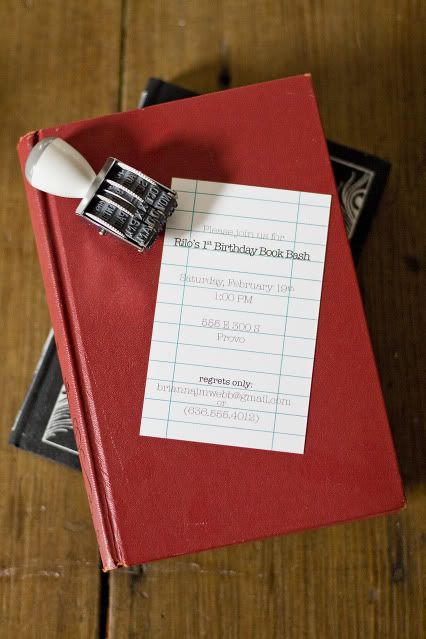 Please join us for
Rilo's 1st Birthday Book Bash
Saturday, February 19th
1:00 PM
555 E 300 S
Provo
regrets only:
briannajmwebb@gmail.com
or
(636.555.4012)